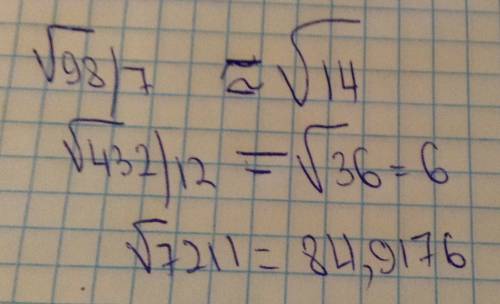 √98/7 ≅ √14
√432/12 = √36 = 6
√7211 = 84,9176